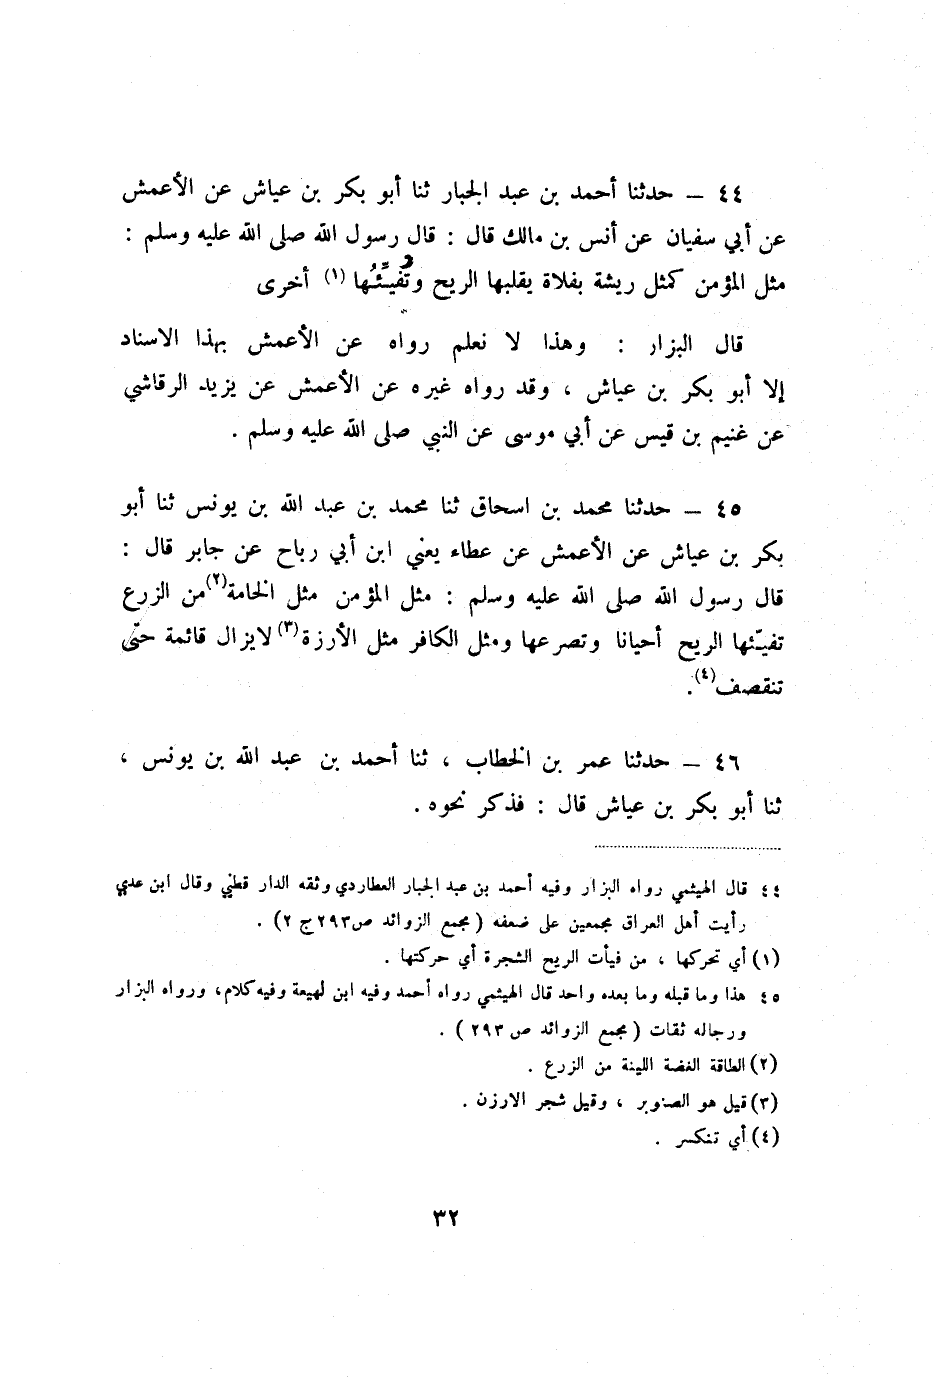 ٤٤ – حدثنا أحمد بن عبد الجبار ثنا أبو بكر بن عياش عن الأعمش
عن أبي سفيان عن أنس بن مالك قال : قال رسول الله صلى الله عليه وسلم :
مثل المؤمن كمثل ريشة بفلاة يقلبها الريح وتُفيّئُها (١) أخرى
قال البزار : وهذا لا نعلم رواه عن الأعمش بهذا الاسناد
إلا أبو بكر بن عياش ، وقد رواه غيره عن الأعمش عن يزيد الرقاشي
عن غنيم بن قيس عن أبي موسى عن النبي صلى الله عليه وسلم .
٤٥ – حدثنا محمد بن اسحاق ثنا محمد بن عبد الله بن يونس ثنا أبو
بكر بن عياش عن الأعمش عن عطاء يعني ابن أبي رباح عن جابر قال :
قال رسول الله صلى الله عليه وسلم : مثل المؤمن مثل الخامة(٢) من الزرع
تفيّئها الريح أحيانا وتصرعها ومثل الكافر مثل الأرزة(٣) لايزال قائمة حتّى
تنقصف(٤).
٤٦ – حدثنا عمر بن الخطاب ، ثنا أحمد بن عبد الله بن يونس ،
ثنا أبو بكر بن عياش قال : فذكر نحوه .
٤٤ قال الهيثمي رواه البزار وفيه أحمد بن عبد الجبار العطاردي وثقه الدار قطني وقال ابن عدي
رأيت أهل العراق مجمعين على ضعفه (مجمع الزوائد ص٢٩٣ ج ٢) .
(١) أي تحركها ، من فيأت الريح الشجرة أي حركتها .
٤٥ هذا وما قبله وما بعده واحد قال الهيثمي رواه أحمد وفيه ابن لهيعة وفيه كلام، ورواه البزار
ورجاله ثقات (مجمع الزوائد ص ٢٩٣) .
(٢) الطاقة الغضة اللينة من الزرع .
(٣) قيل هو الصنوبر ، وقيل شجر الارزن .
(٤) أي تنكسر .
٣٢